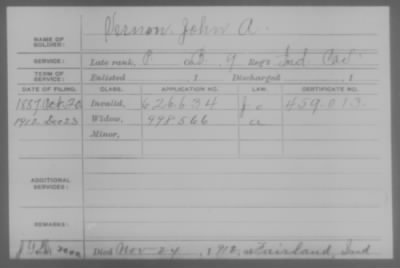 NAME OF SOLDIER: Vernon, John A.
SERVICE: Late rank, P Co. B, 9 Reg't Ind. Cav.
TERM OF SERVICE: Enlisted , 1 Discharged , 1
DATE OF FILING. CLASS. APPLICATION NO. LAW. CERTIFICATE NO.
1887 Oct. 20 Invalid, 626634 459013
1912 Dec 23 Widow, 998566
Minor,
ADDITIONAL SERVICES:
REMARKS:
Died Nov 24, 1912, at Fairland, Ind.